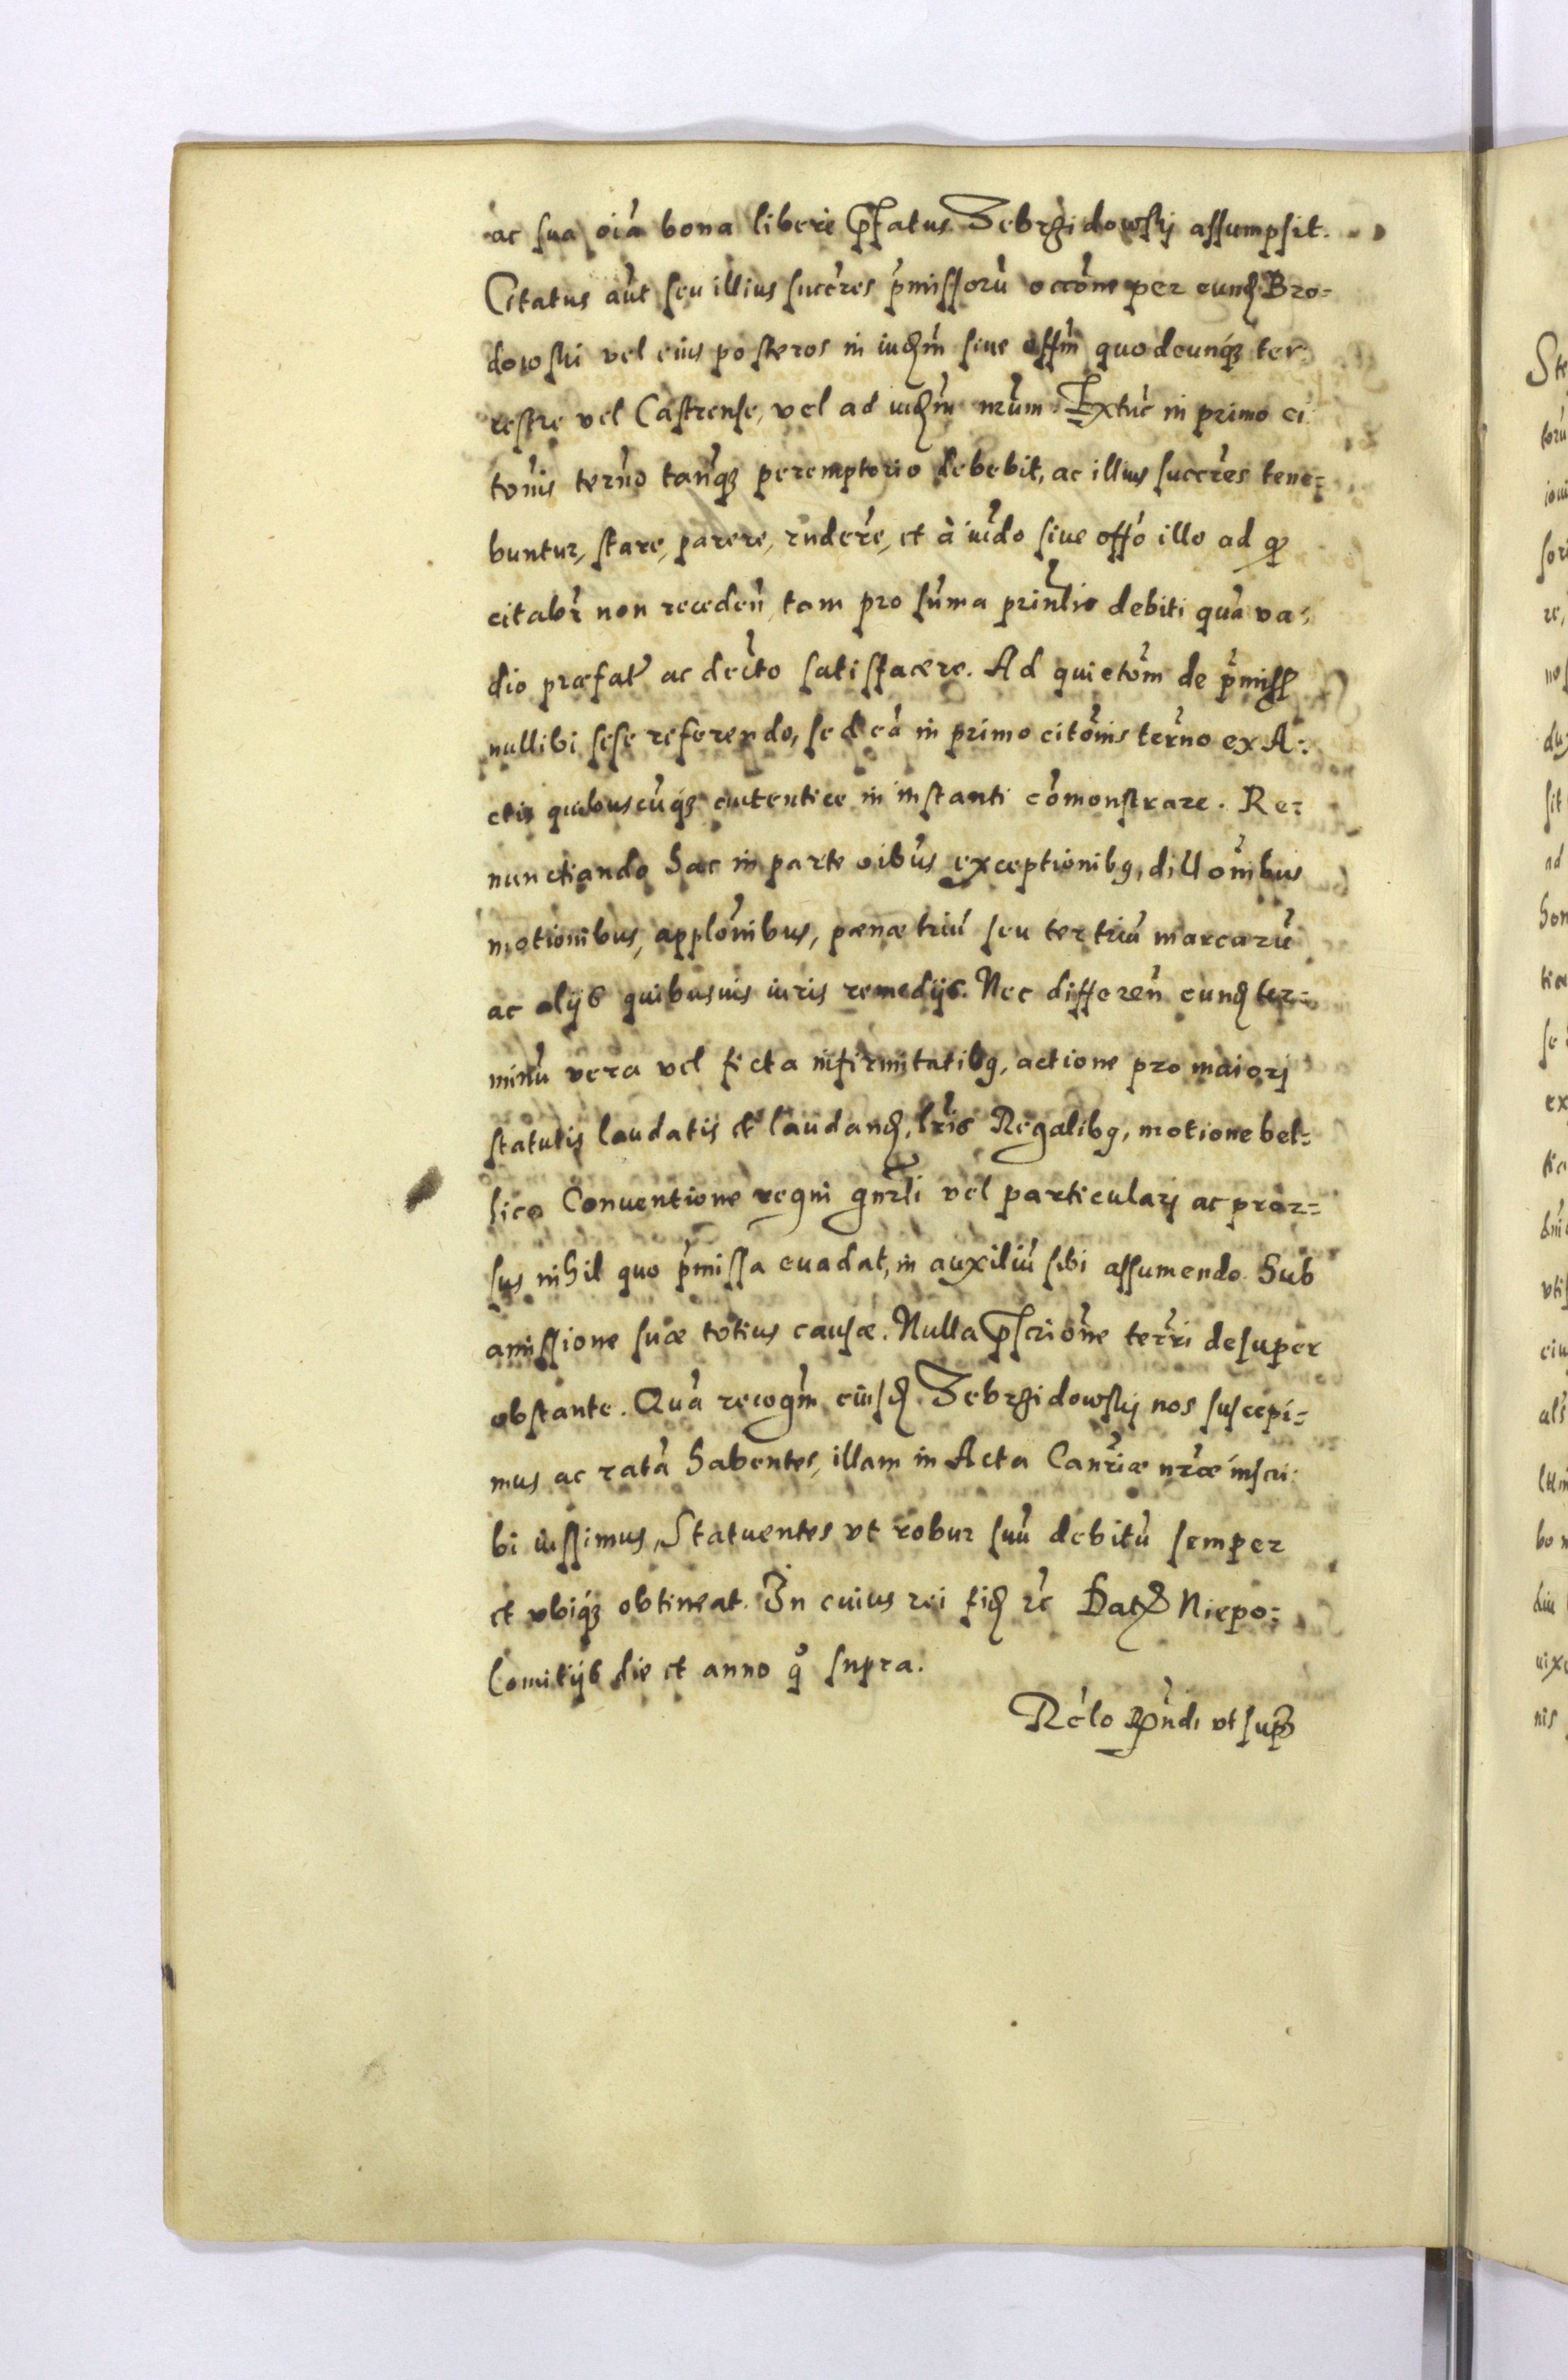 ac sua oia bona libere pfatus Zebrzidowskj assumpsit.
Citatus aut seu illius succres pmissoru occone per eund Bro=
dowski vel eius posteros in iudm siue offm quodcunqz ter
restre vel Castrense, vel ad iudm nrum. Extuc in primo ci
tonis termo tanqz peremptorio debebit, ac illius succres tene=
buntur, stare, parere, rndere, et à iudo siue offo illo ad qd
citabr non receden, tam pro suma prinlis debiti qua va=
dio præfat ac decto satisfacere. Ad quietom de pmiss
nullibi sese referendo, sed ea in primo citonis termo ex A=
ctis quibuscuqz autentice in instanti comonstrare. Re=
nunctiando hac in parte oibus exceptionibq, dillonibus
motionibus, applonibus, pænæ triu seu ter triu marcaru
ac alijs quibusuis iuris remedijs. Nec differen eund ter=
minu vera vel ficta infirmitatibq, actione pro maiorj
statutis laudatis et laudand, lris Regalibq, motione bel=
lica Conuentione regni gnrli vel particularj ac pror=
sus nihil quo pmissa euadat, in auxiliu sibi assumendo. Sub
amissione suæ totius causæ. Nulla pscrione terri desuper
obstante. Qua recogm eiusd Zebrzidowskj nos suscepi=
mus ac rata habentes, illam in Acta Canriæ nræ inscri
bi iussimus, Statuentes vt robur suu debitu semper
et vbiqz obtineat. In cuius rei fid rc Dat Niepo=
lomitijs die et anno q supra.
Relo Rndi vt supra